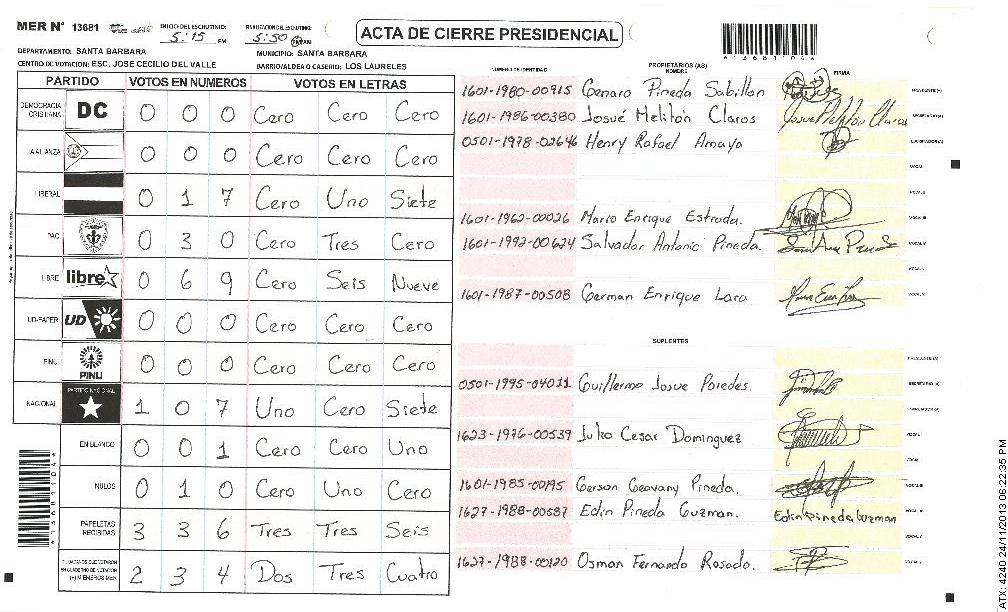 MER Nº 13681
INICIO DEL ESCRUTINIO: 5:15 PM
FINALIZACION DEL ESCRUTINIO: 5:50
ACTA DE CIERRE PRESIDENCIAL
DEPARTAMENTO: SANTA BARBARA
MUNICIPIO: SANTA BARBARA
CENTRO DE VOTACION: ESC. JOSE CECILIO DEL VALLE
BARRIO/ALDEA O CASERIO: LOS LAURELES
PARTIDO VOTOS EN NUMEROS VOTOS EN LETRAS
DEMOCRACIA CRISTIANA DC 0 0 0 Cero Cero Cero
ALIANZA 0 0 0 Cero Cero Cero
LIBERAL 0 1 7 Cero Uno Siete
PAC 0 3 0 Cero Tres Cero
LIBRE libre 0 6 9 Cero Seis Nueve
UD-FAPER UD 0 0 0 Cero Cero Cero
PINU PINU 0 0 0 Cero Cero Cero
NACIONAL PARTIDO NACIONAL 1 0 7 Uno Cero Siete
EN BLANCO 0 0 1 Cero Cero Uno
NULOS 0 1 0 Cero Uno Cero
PAPELETAS RECIBIDAS 3 3 6 Tres Tres Seis
CIUDADANOS QUE VOTARON EN CUADERNO DE VOTACION (+) MIEMBROS MER 2 3 4 Dos Tres Cuatro
NUMERO DE IDENTIDAD PROPIETARIOS (AS) NOMBRE FIRMA
1601-1980-00915 Genaro Pineda Sabillon PRESIDENTE(A)
1601-1986-00380 Josué Melitón Claros SECRETARIO(A)
0501-1978-02646 Henry Rafael Amaya ESCRUTADOR(A)
VOCAL I
VOCAL II
1601-1962-00026 Marco Enrique Estrada. VOCAL III
1601-1992-00624 Salvador Antonio Pineda. VOCAL IV
VOCAL V
1601-1987-00508 German Enrique Lara VOCAL VI
SUPLENTES
PRESIDENTE(A)
0501-1995-04011 Guillermo Josue Paredes. SECRETARIO(A)
ESCRUTADOR(A)
1623-1976-00539 Julio Cesar Dominguez VOCAL I
VOCAL II
1601-1985-00195 Gerson Geovany Pineda. VOCAL III
1627-1988-00587 Edin Pineda Guzman. Edin Pineda Guzman VOCAL IV
VOCAL V
1627-1988-00120 Osman Fernando Rosado. VOCAL VI
ATX: 4240 24/11/2013 06:22:35 PM